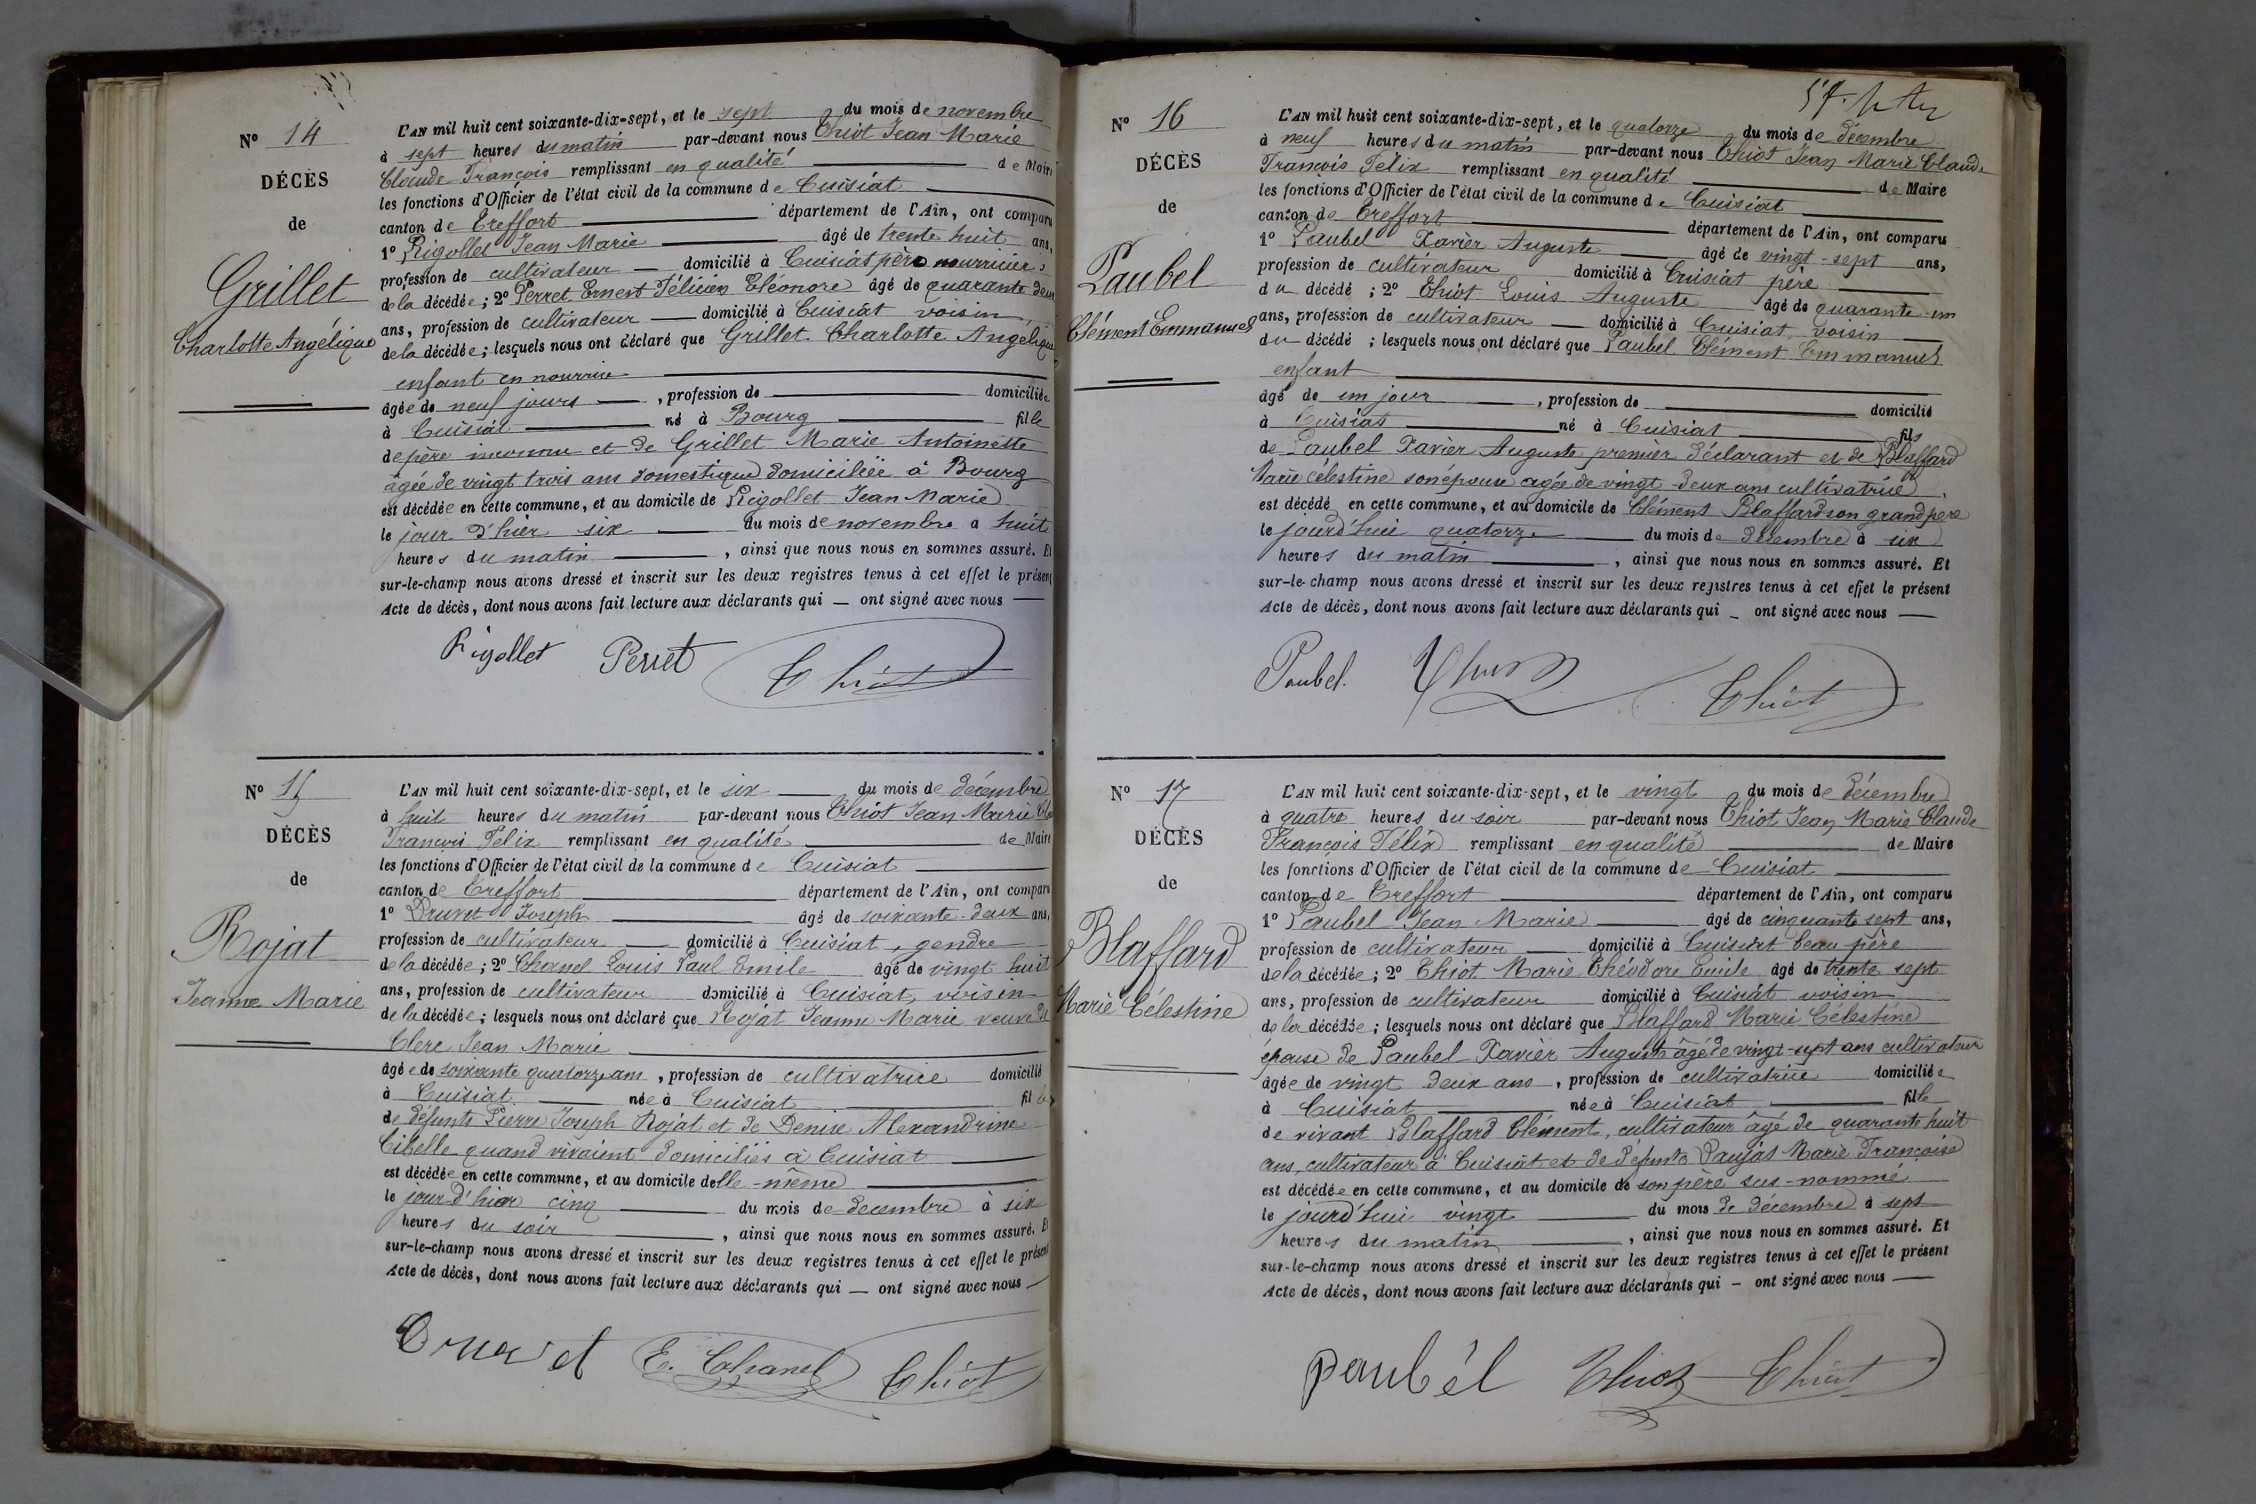 Nº 14
DÉCÈS
de
Grillet
Charlotte Angélique
L'AN mil huit cent soixante-dix-sept, et le sept du mois de novembre
à sept heures du matin par-devant nous Thiot Jean Marie
Claude François remplissant en qualité de Maire
les fonctions d'Officier de l'état civil de la commune de Cuisiat
canton de Treffort département de l'Ain, ont comparu
1º Rigollet Jean Marie âgé de trente huit ans,
profession de cultivateur domicilié à Cuisiat père nourricier
de la décédée; 2º Perret Ernest Félicien Eléonore âgé de quarante deux
ans, profession de cultivateur domicilié à Cuisiat voisin
de la décédée; lesquels nous ont déclaré que Grillet Charlotte Angélique
enfant en nourrice
âgée de neuf jours, profession de domiciliée
à Cuisiat né à Bourg fille
de père inconnu et de Grillet Marie Antoinette
agée de vingt trois ans domestique domiciliée à Bourg
est décédée en cette commune, et au domicile de Rigollet Jean Marie
le jour d'hier six du mois de novembre à huit
heures du matin, ainsi que nous nous en sommes assuré. Et
sur-le-champ nous avons dressé et inscrit sur les deux registres tenus à cet effet le présent
Acte de décès, dont nous avons fait lecture aux déclarants qui — ont signé avec nous —
Rigollet Perret Thiot
Nº 15
DÉCÈS
de
Rojat
Jeanne Marie
L'AN mil huit cent soixante-dix-sept, et le six du mois de décembre
à huit heures du matin par-devant nous Thiot Jean Marie Cla
François Félix remplissant en qualité de Maire
les fonctions d'Officier de l'état civil de la commune de Cuisiat
canton de Treffort département de l'Ain, ont comparu
1º Druvet Joseph âgé de soixante-deux ans,
profession de cultivateur domicilié à Cuisiat, gendre
de la décédée; 2º Chanel Louis Paul Emile âgé de vingt huit
ans, profession de cultivateur domicilié à Cuisiat, voisin
de la décédée; lesquels nous ont déclaré que Rojat Jeanne Marie veuve de
Clerc Jean Marie
âgée de soixante quatorze ans, profession de cultivatrice domicilié
à Cuisiat née à Cuisiat fille
de défunts Pierre Joseph Rojat et de Denise Alexandrine
Cibelle quand vivaient domiciliés à Cuisiat
est décédée en cette commune, et au domicile delle-même
le jour d'hier cinq du mois de decembre à six
heures du soir, ainsi que nous nous en sommes assuré. Et
sur-le-champ nous avons dressé et inscrit sur les deux registres tenus à cet effet le présent
Acte de décès, dont nous avons fait lecture aux déclarants qui — ont signé avec nous —
Druvet E. Chanel Thiot
Nº 16
DÉCÈS
de
Paubel
Clément Emmanuel
L'AN mil huit cent soixante-dix-sept, et le quatorze du mois de décembre
à neuf heures du matin par-devant nous Thiot Jean Marie Claude
François Félix remplissant en qualité de Maire
les fonctions d'Officier de l'état civil de la commune de Cuisiat
canton de Treffort département de l'Ain, ont comparu
1º Paubel Xavier Auguste âgé de vingt-sept ans,
profession de cultivateur domicilié à Cuisiat père
du décédé; 2º Thiot Louis Auguste âgé de quarante-un
ans, profession de cultivateur domicilié à Cuisiat, voisin
du décédé; lesquels nous ont déclaré que Paubel Clément Emmanuel
enfant
âgé de un jour, profession de domicilié
à Cuisiat né à Cuisiat fils
de Paubel Xavier Auguste premier déclarant et de Blaffard
Marie Célestine son épouse agée de vingt-deux ans cultivatrice
est décédé en cette commune, et au domicile de Clément Blaffard son grand père
le jourd'hui quatorze du mois de décembre à six
heures du matin, ainsi que nous nous en sommes assuré. Et
sur-le-champ nous avons dressé et inscrit sur les deux registres tenus à cet effet le présent
Acte de décès, dont nous avons fait lecture aux déclarants qui — ont signé avec nous —
Paubel. Thiot Thiot
Nº 17
DÉCÈS
de
Blaffard
Marie Célestine
L'AN mil huit cent soixante-dix-sept, et le vingt du mois de décembre
à quatre heures du soir par-devant nous Thiot Jean Marie Claude
François Félix remplissant en qualité de Maire
les fonctions d'Officier de l'état civil de la commune de Cuisiat
canton de Treffort département de l'Ain, ont comparu
1º Paubel Jean Marie âgé de cinquante sept ans,
profession de cultivateur domicilié à Cuisiat beau père
de la décédée; 2º Thiot Marie Théodore Emile âgé de trente sept
ans, profession de cultivateur domicilié à Cuisiat voisin
de la décédée; lesquels nous ont déclaré que Blaffard Marie Célestine
épouse de Paubel Xavier Auguste âgé de vingt-sept ans cultivateur
âgée de vingt deux ans, profession de cultivatrice domiciliée
à Cuisiat née à Cuisiat fille
de vivant Blaffard Clément, cultivateur âgé de quarante huit
ans, cultivateur à Cuisiat et de défunte Paujat Marie Françoise
est décédée en cette commune, et au domicile de son père sus-nommé
le jourd'hui vingt du mois de décembre à sept
heures du matin, ainsi que nous nous en sommes assuré. Et
sur-le-champ nous avons dressé et inscrit sur les deux registres tenus à cet effet le présent
Acte de décès, dont nous avons fait lecture aux déclarants qui — ont signé avec nous —
Paubél Thiot Thiot